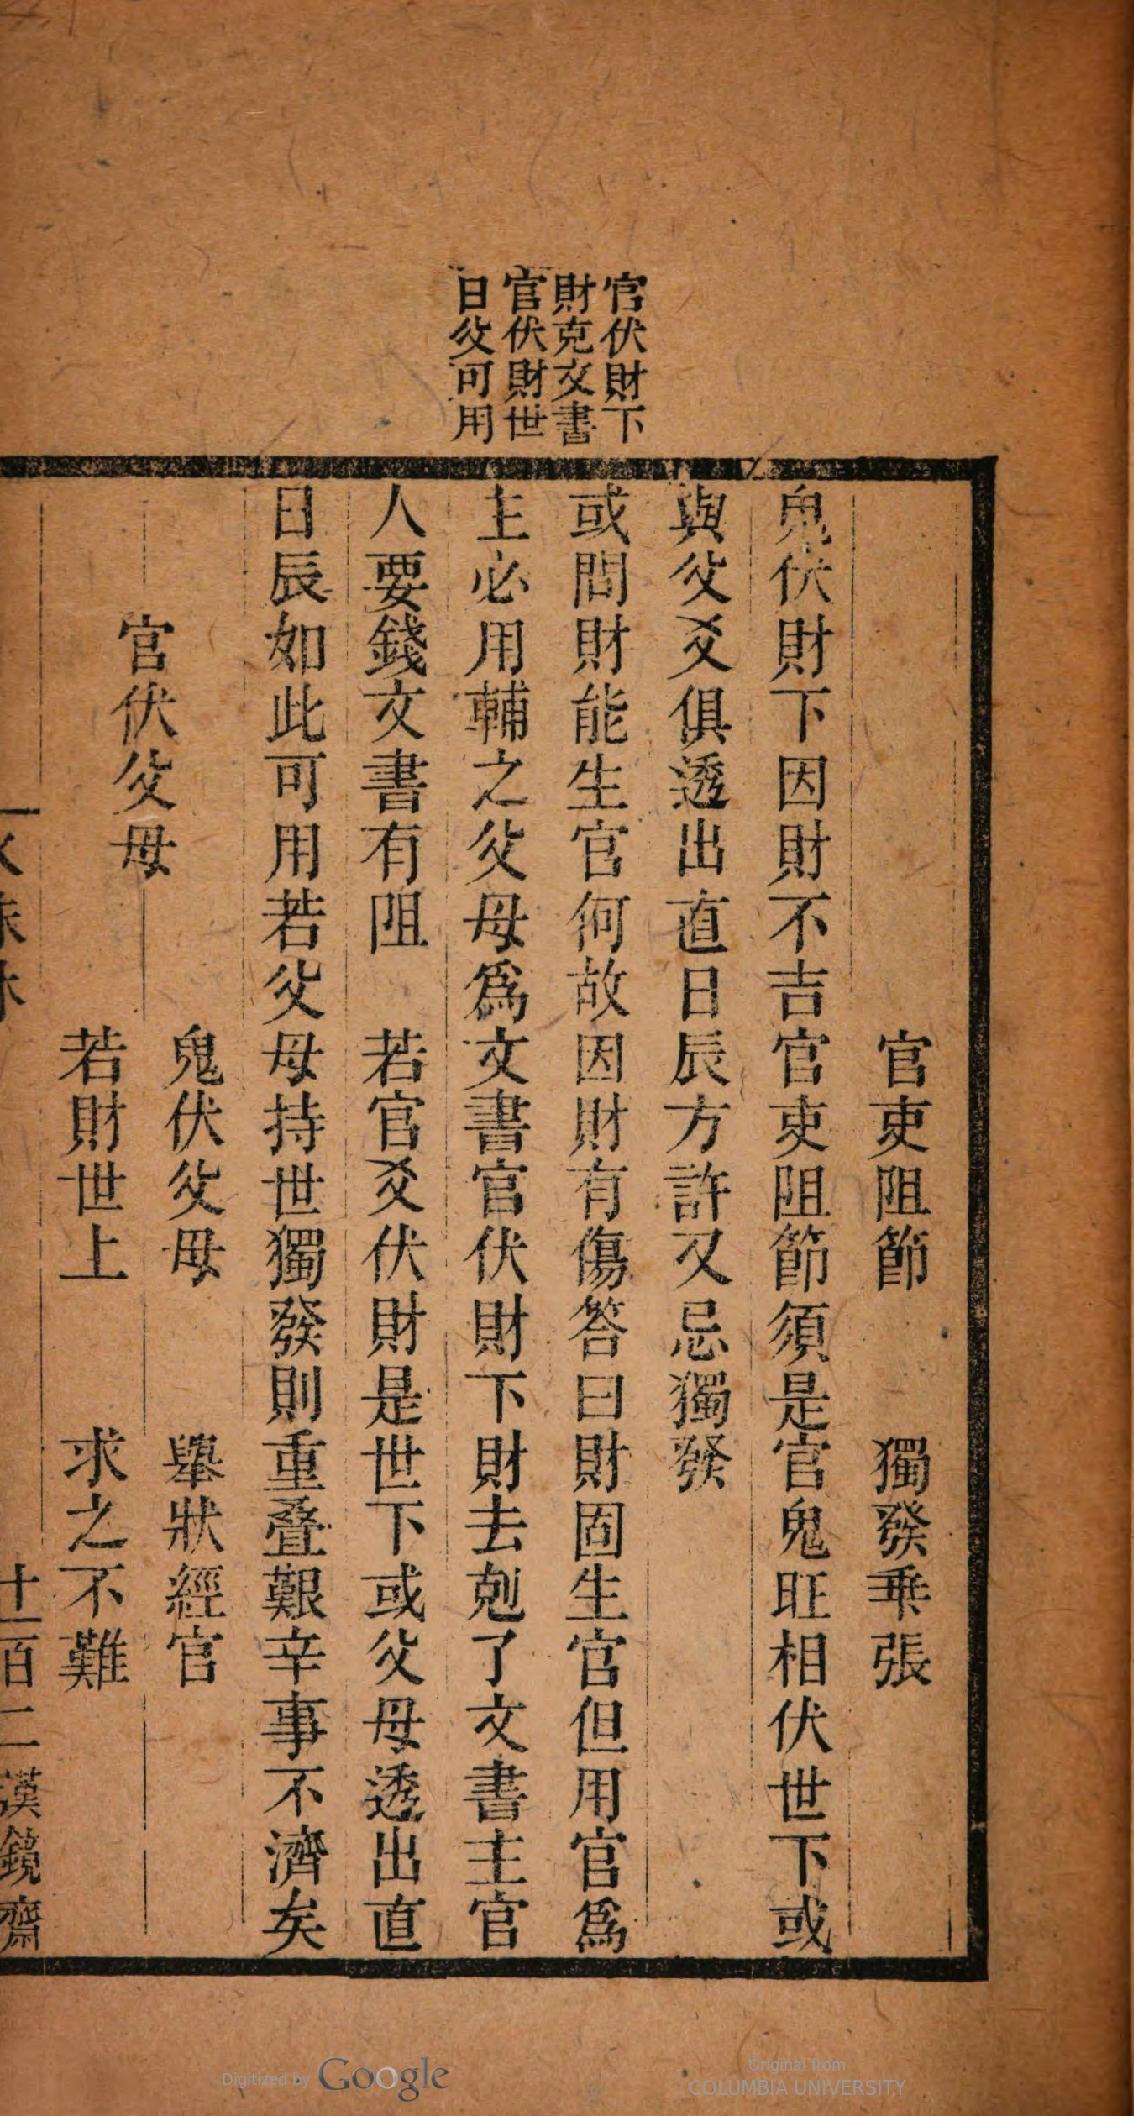 官伏財下
財克文書
官伏財世
日父可用
官吏阻節 獨發乖張
鬼伏財下因財不吉官吏阻節須是官鬼旺相伏世下或
與父爻俱透出直日辰方許又忌獨發
或問財能生官何故因財有傷答曰財固生官但用官爲
主必用輔之父母爲文書官伏財下財去剋了文書主官
人要錢文書有阻 若官爻伏財是世下或父母透出直
日辰如此可用若父母持世獨發則重叠艱辛事不濟矣
官伏父母
鬼伏父母 舉狀經官
若財世上 求之不難
十一百二漢鏡齋
Digitized by Google
Original from
COLUMBIA UNIVERSITY